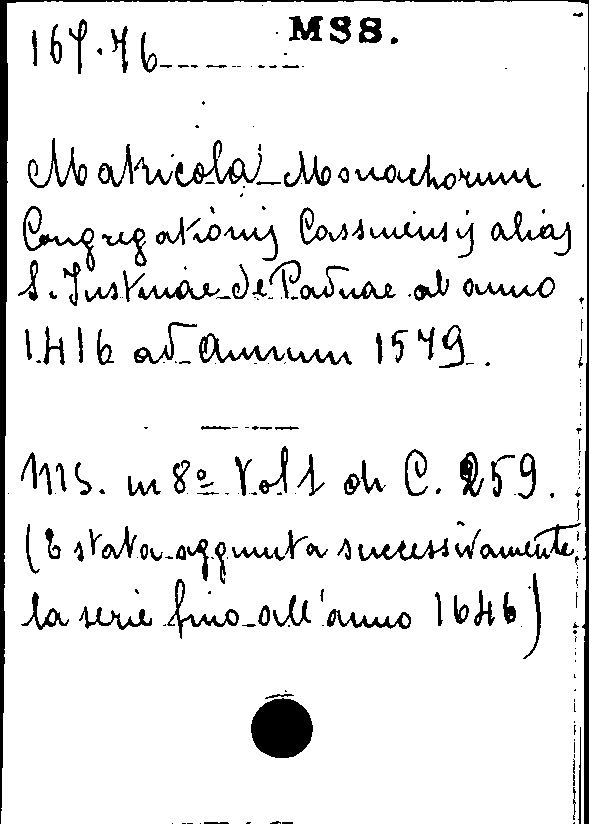 MSS.
167.76
Matricola Monachorum
Congregationis Cassinensis alias
S. Justinae de Paduae ab anno
1416 ad Annum 1579.
MS. in 8º Vol 1 di C. 259.
(È stata aggiunta successivamente
la serie fino all'anno 1646)